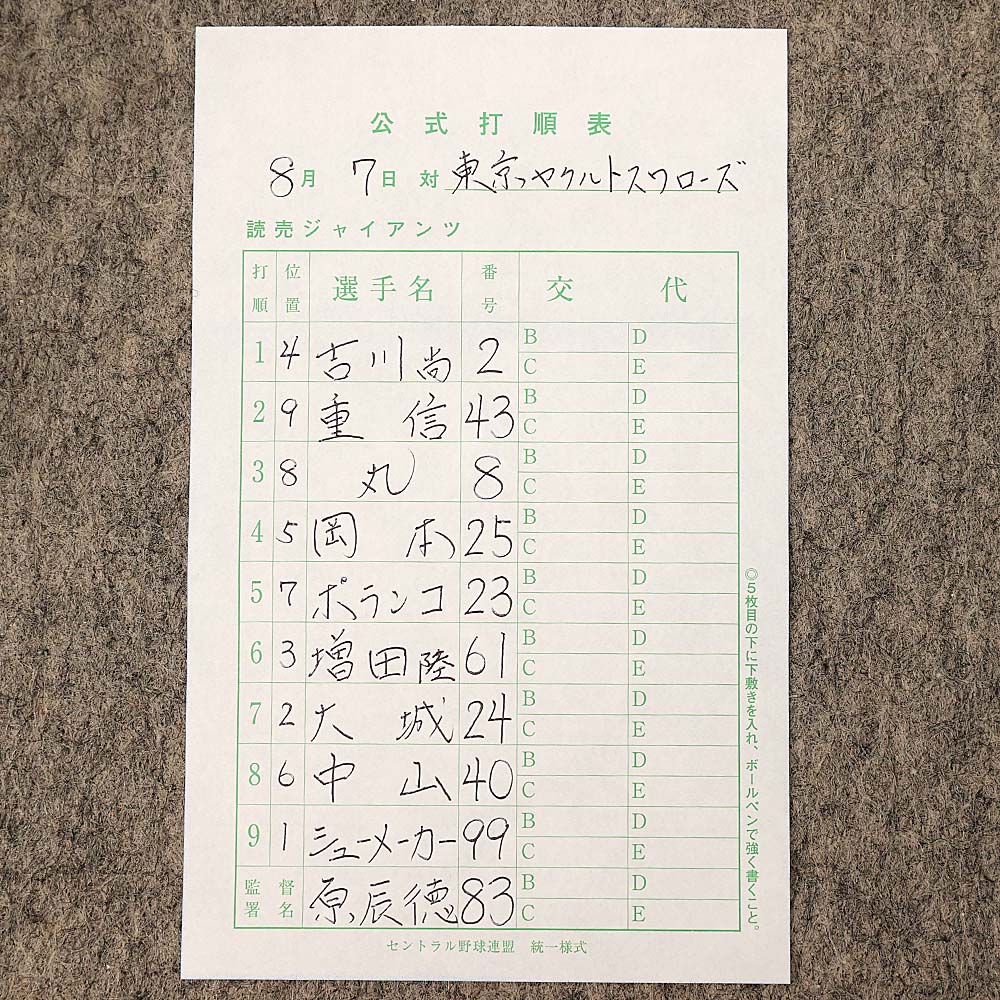 公式打順表
8月 7日 対 東京ヤクルトスワローズ
読売ジャイアンツ
打順 位置 選手名 番号 交代
1 4 吉川尚 2 B D C E
2 9 重信 43 B D C E
3 8 丸 8 B D C E
4 5 岡本 25 B D C E
5 7 ポランコ 23 B D C E
6 3 増田陸 61 B D C E
7 2 大城 24 B D C E
8 6 中山 40 B D C E
9 1 シューメーカー 99 B D C E
監督署名 原辰徳 83 B D C E
◎5枚目の下に下敷きを入れ、ボールペンで強く書くこと。
セントラル野球連盟 統一様式